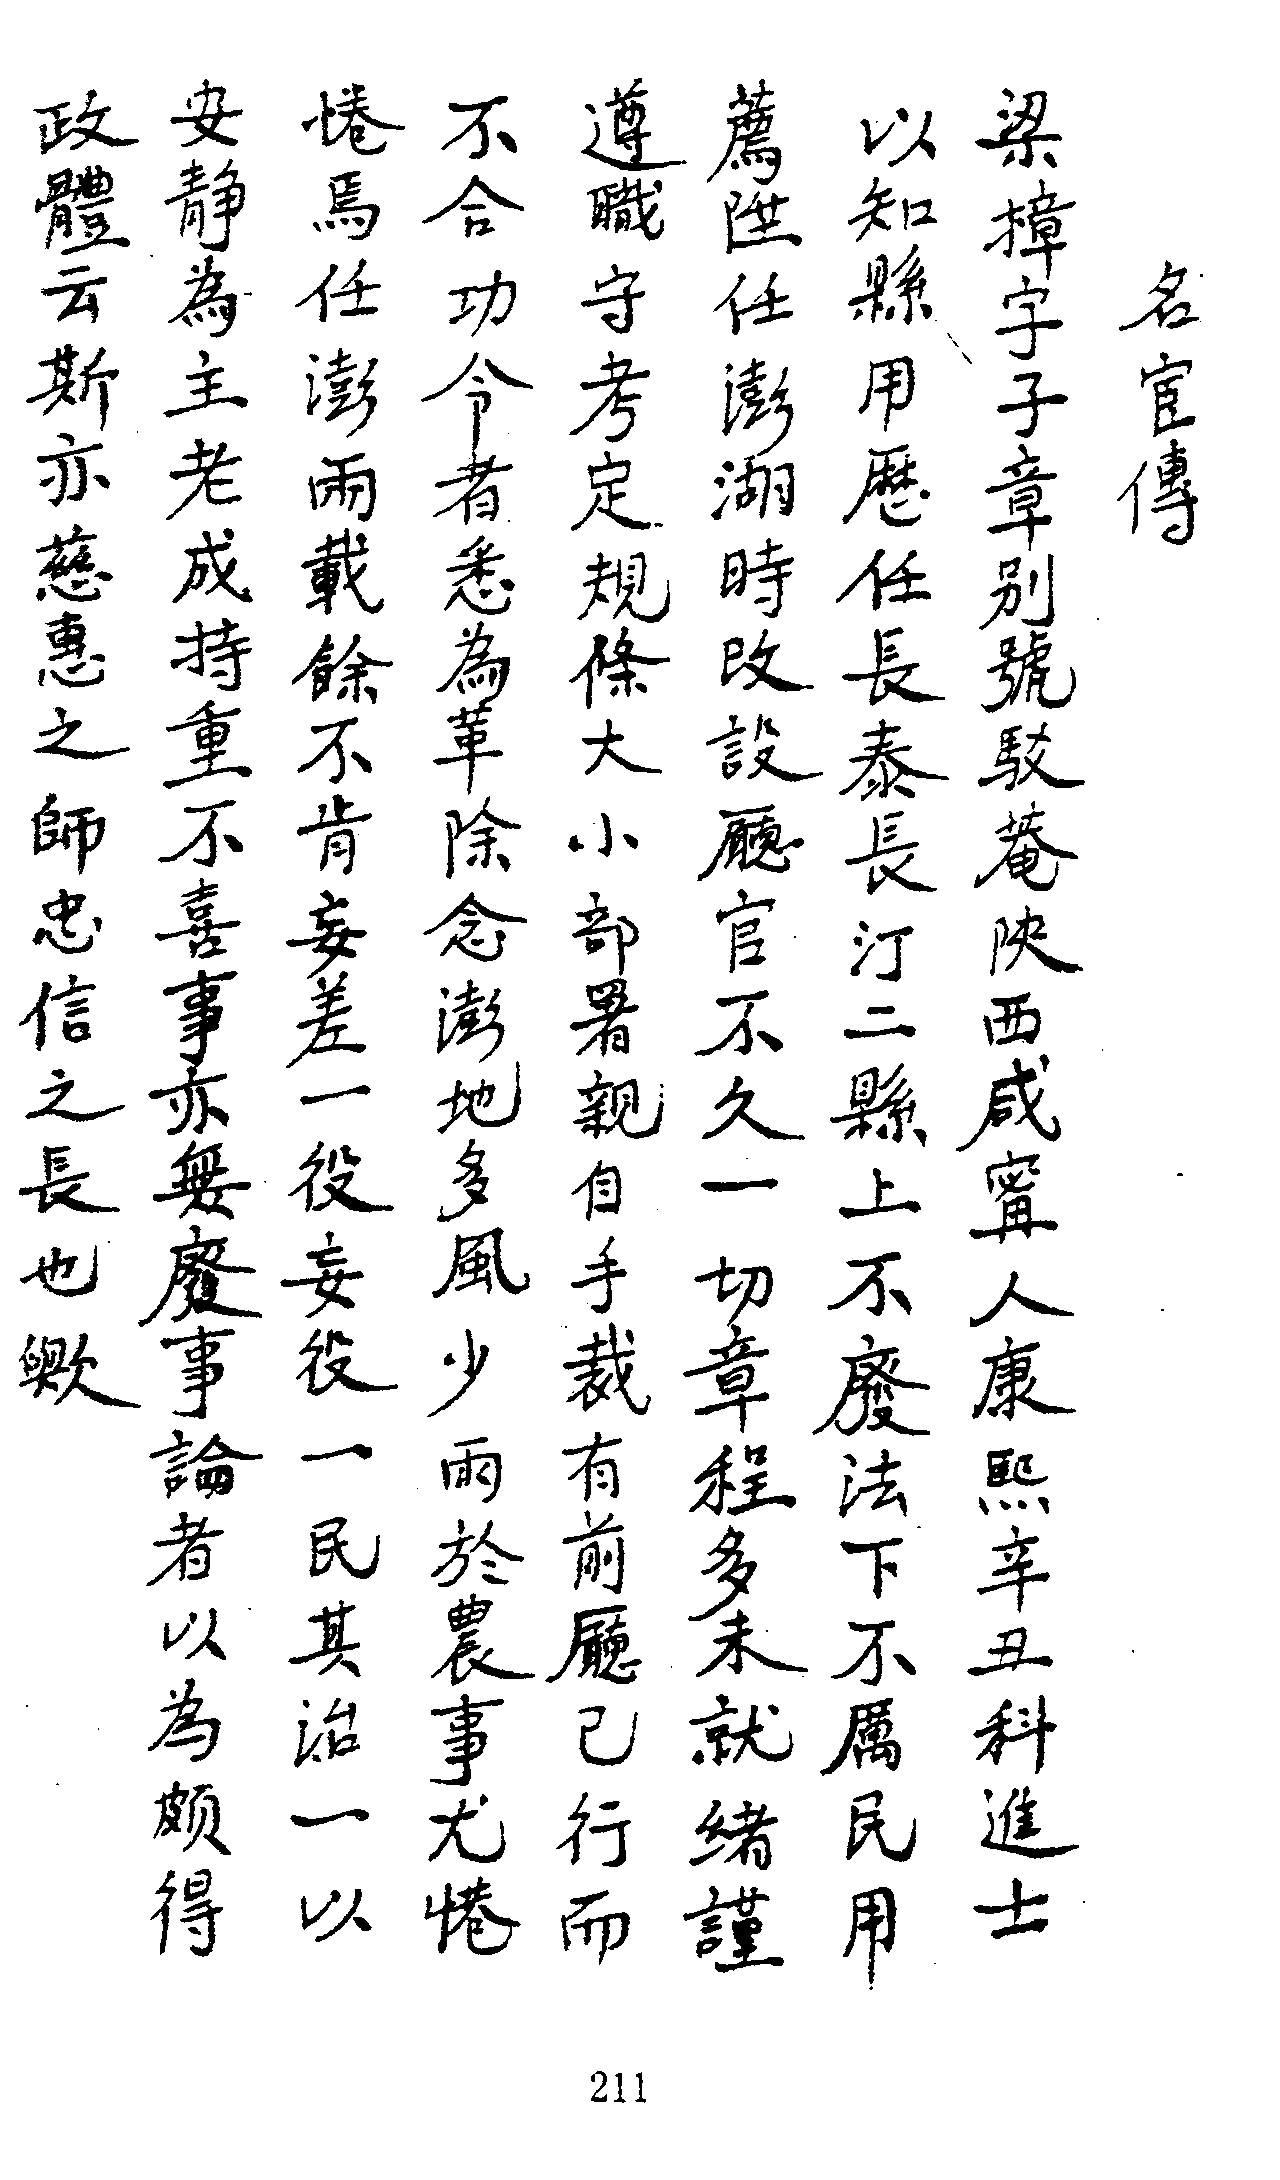 名宦傳
梁樟字子章別號駁菴陜西咸寧人康熙辛丑科進士
以知縣用歷任長泰長汀二縣上不廢法下不厲民用
薦陞任澎湖時改設廳官不久一切章程多未就緒謹
遵職守考定規條大小部署親自手裁有前廳已行而
不合功令者悉為革除念澎地多風少雨於農事尤惓
惓焉任澎兩載餘不肯妄差一役妄役一民其治一以
安靜為主老成持重不喜事亦無廢事論者以為頗得
政體云斯亦慈惠之師忠信之長也歟
211